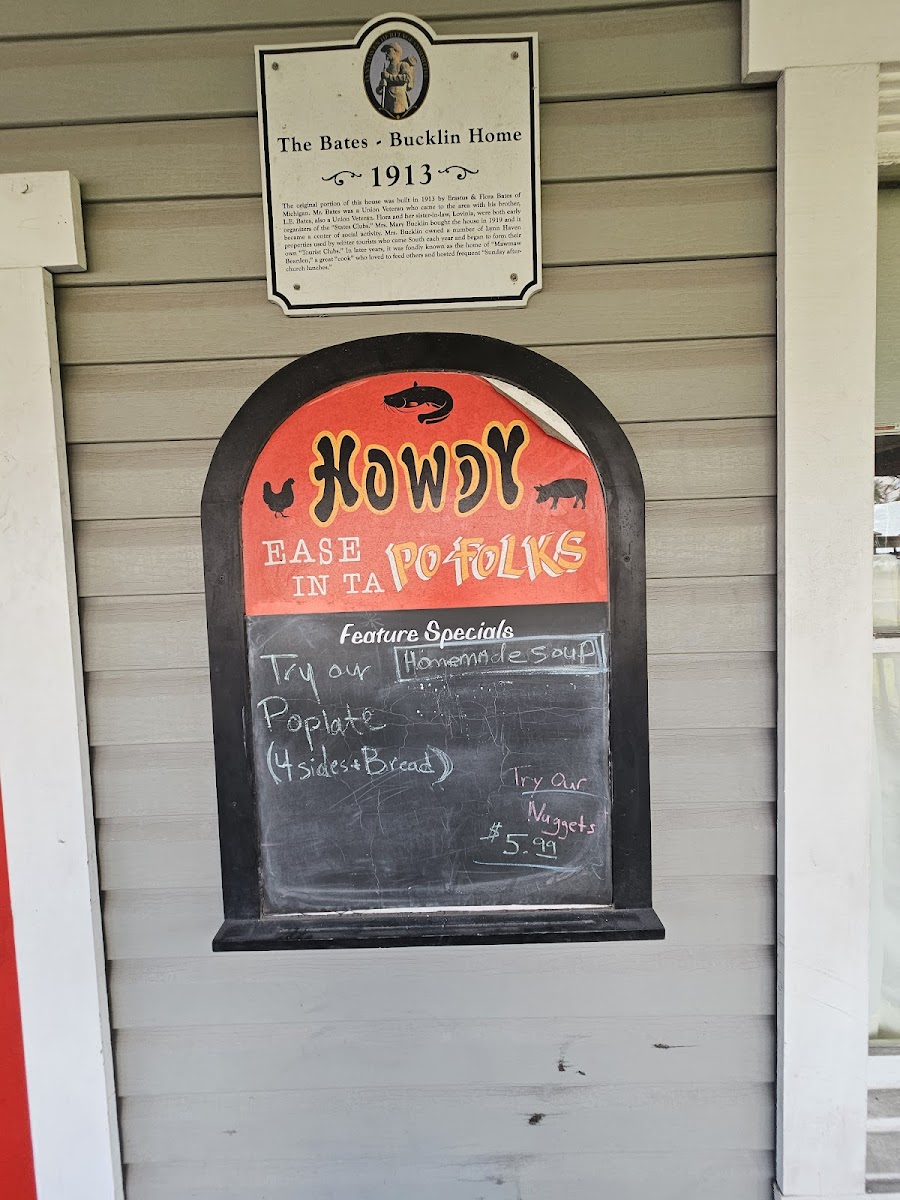 The Bates - Bucklin Home
1913
The original portion of this house was built in 1913 by Erastus & Flora Bates of
Michigan. Mr. Bates was a Union Veteran who came to the area with his brother,
L.E. Bates, also a Union Veteran. Flora and her sister-in-law, Lovinia, were both early
organizers of the "States Clubs." Mrs. Mary Bucklin bought the house in 1919 and it
became a center of social activity. Mrs. Bucklin owned a number of Lynn Haven
properties used by winter tourists who came South each year and began to form their
own "Tourist Clubs." In later years, it was fondly known as the home of "Mawmaw
Bearden," a great "cook" who loved to feed others and hosted frequent "Sunday after-
church lunches."
HOWDY
EASE
IN TA
PO FOLKS
Feature Specials
Try our Homemade Soup
Poplate
(4 sides + Bread)
Try our
Nuggets
$5.99